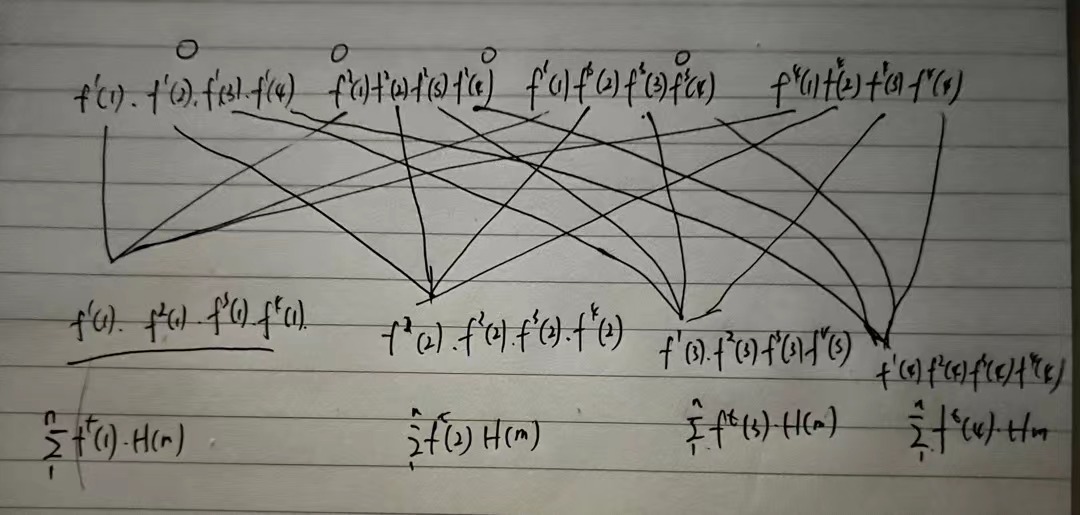 0 0 0 0
f¹(1). f¹(2). f¹(3). f¹(4) f²(1) f²(2) f²(3) f²(4) f³(1) f³(2) f³(3) f³(4) f⁴(1) f⁴(2) f⁴(3) f⁴(4)
f¹(1). f²(1). f³(1). f⁴(1). f¹(2). f²(2). f³(2). f⁴(2) f¹(3). f²(3) f³(3) f⁴(3) f¹(4) f²(4) f³(4) f⁴(4)
n∑1 fᵗ(1)·H(m) n∑1 fᵗ(2) H(m) n∑1 fᵗ(3)·H(m) n∑1 fᵗ(4)·Hm